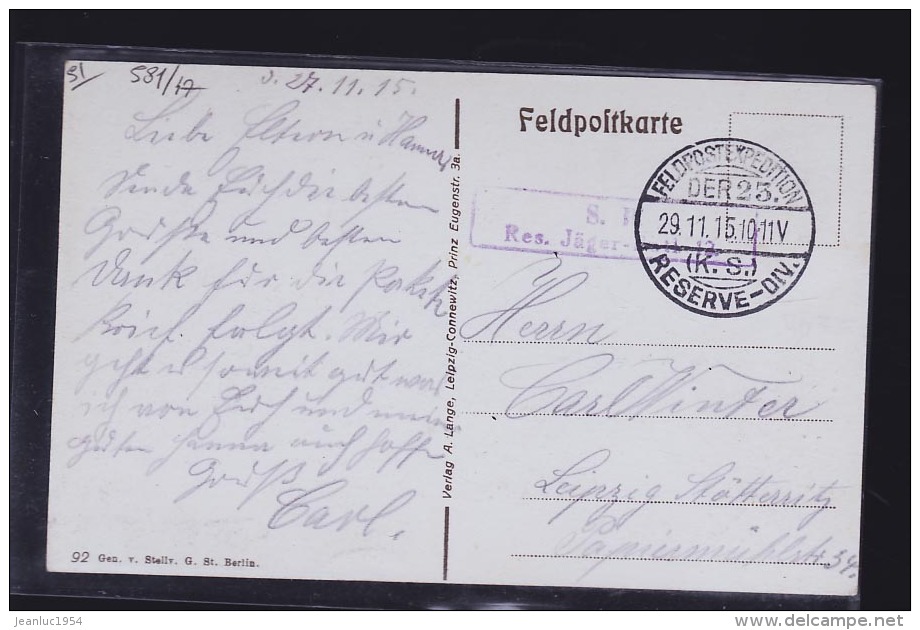 51
581/17
d. 27.11.15.
Liebe Eltern u Hanna
Sende Euch die besten
Grüße und besten
Dank für die Pakete
Brief folgt. Mir
geht es somit gut was
ich von Euch und meiner
guten Hanna auch hoffe
Gruß
Carl.
92 Gen. v. Stellv. G. St. Berlin.
Verlag A. Lange, Leipzig-Connewitz, Prinz Eugenstr. 3a.
Feldpostkarte
S.
Res. Jäger-
FELDPOSTEXPEDITION
DER 25.
29.11.15.10-11V
(K. S.)
RESERVE-DIV.
Herrn
Carl Winter
Leipzig Stötteritz
Papiermühlstr 34.
jeanluc1954